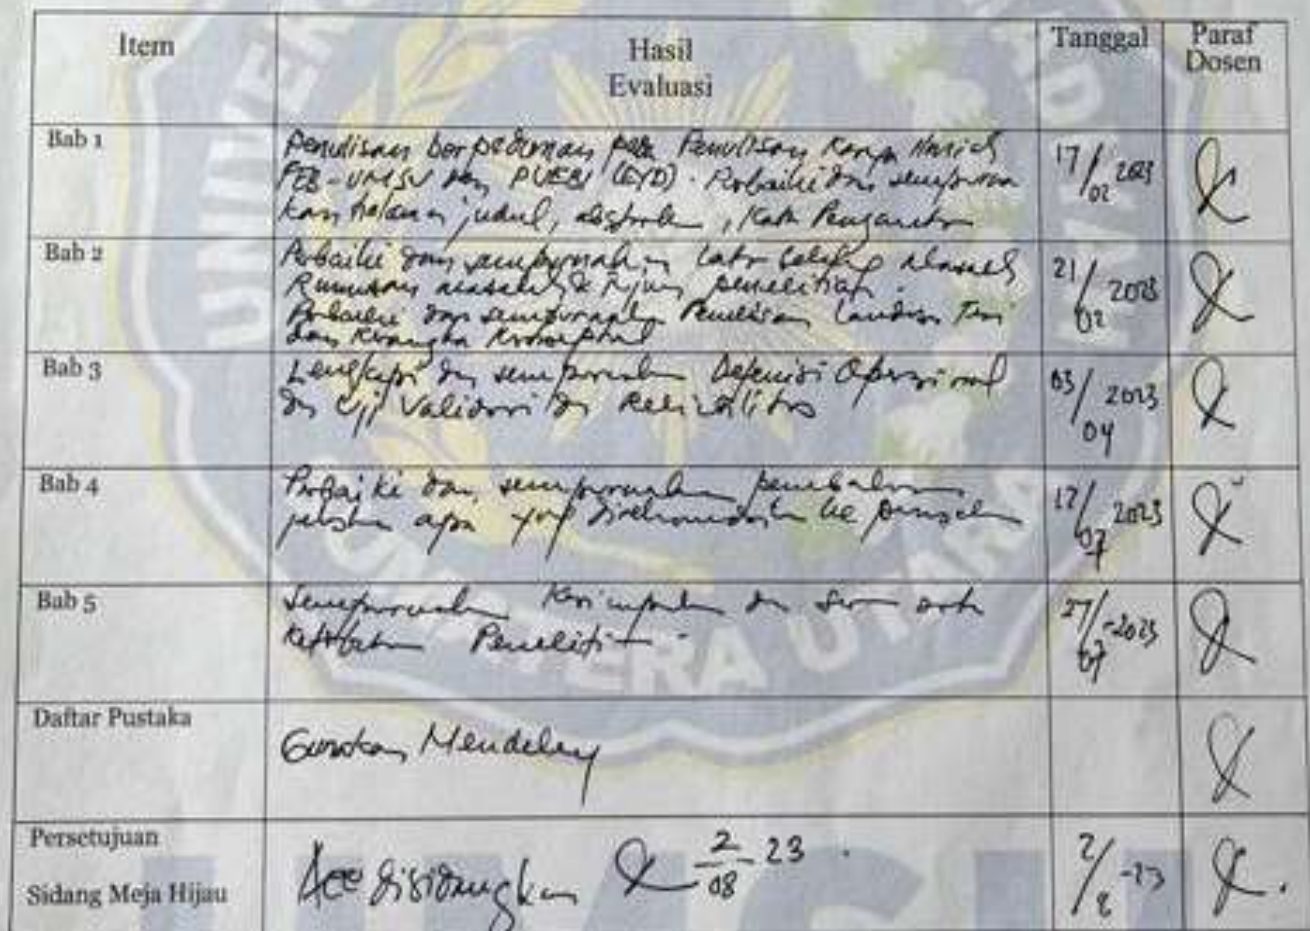 Item Hasil Evaluasi Tanggal Paraf Dosen
Bab 1 Penulisan berpedoman pada Penulisan Karya Ilmiah 17/02 2023
FEB-UMSU dan PUEBI (EYD). Perbaiki dan sempurna
kan halaman judul, abstrak, Kata Pengantar
Bab 2 Perbaiki dan sempurnakan latar belakang masalah 21/02 2023
Rumusan masalah & Tujuan penelitian.
Perbaiki dan sempurnakan Penulisan Landasan Teori
dan Kerangka Konseptual
Bab 3 Lengkapi dan sempurnakan Defenisi Operasional 03/04 2023
dan Uji Validitas dan Reliabilitas
Bab 4 Perbaiki dan sempurnakan pembahasan 12/07 2023
apa yang direkomendasikan ke perusahaan
Bab 5 Sempurnakan Kesimpulan dan Saran serta 27/07-2023
Penelitian -
Daftar Pustaka Gunakan Mendeley
Persetujuan
Sidang Meja Hijau Acc disidangkan 2/08 23 2/8-23
UMATERA UTARA
UMSU